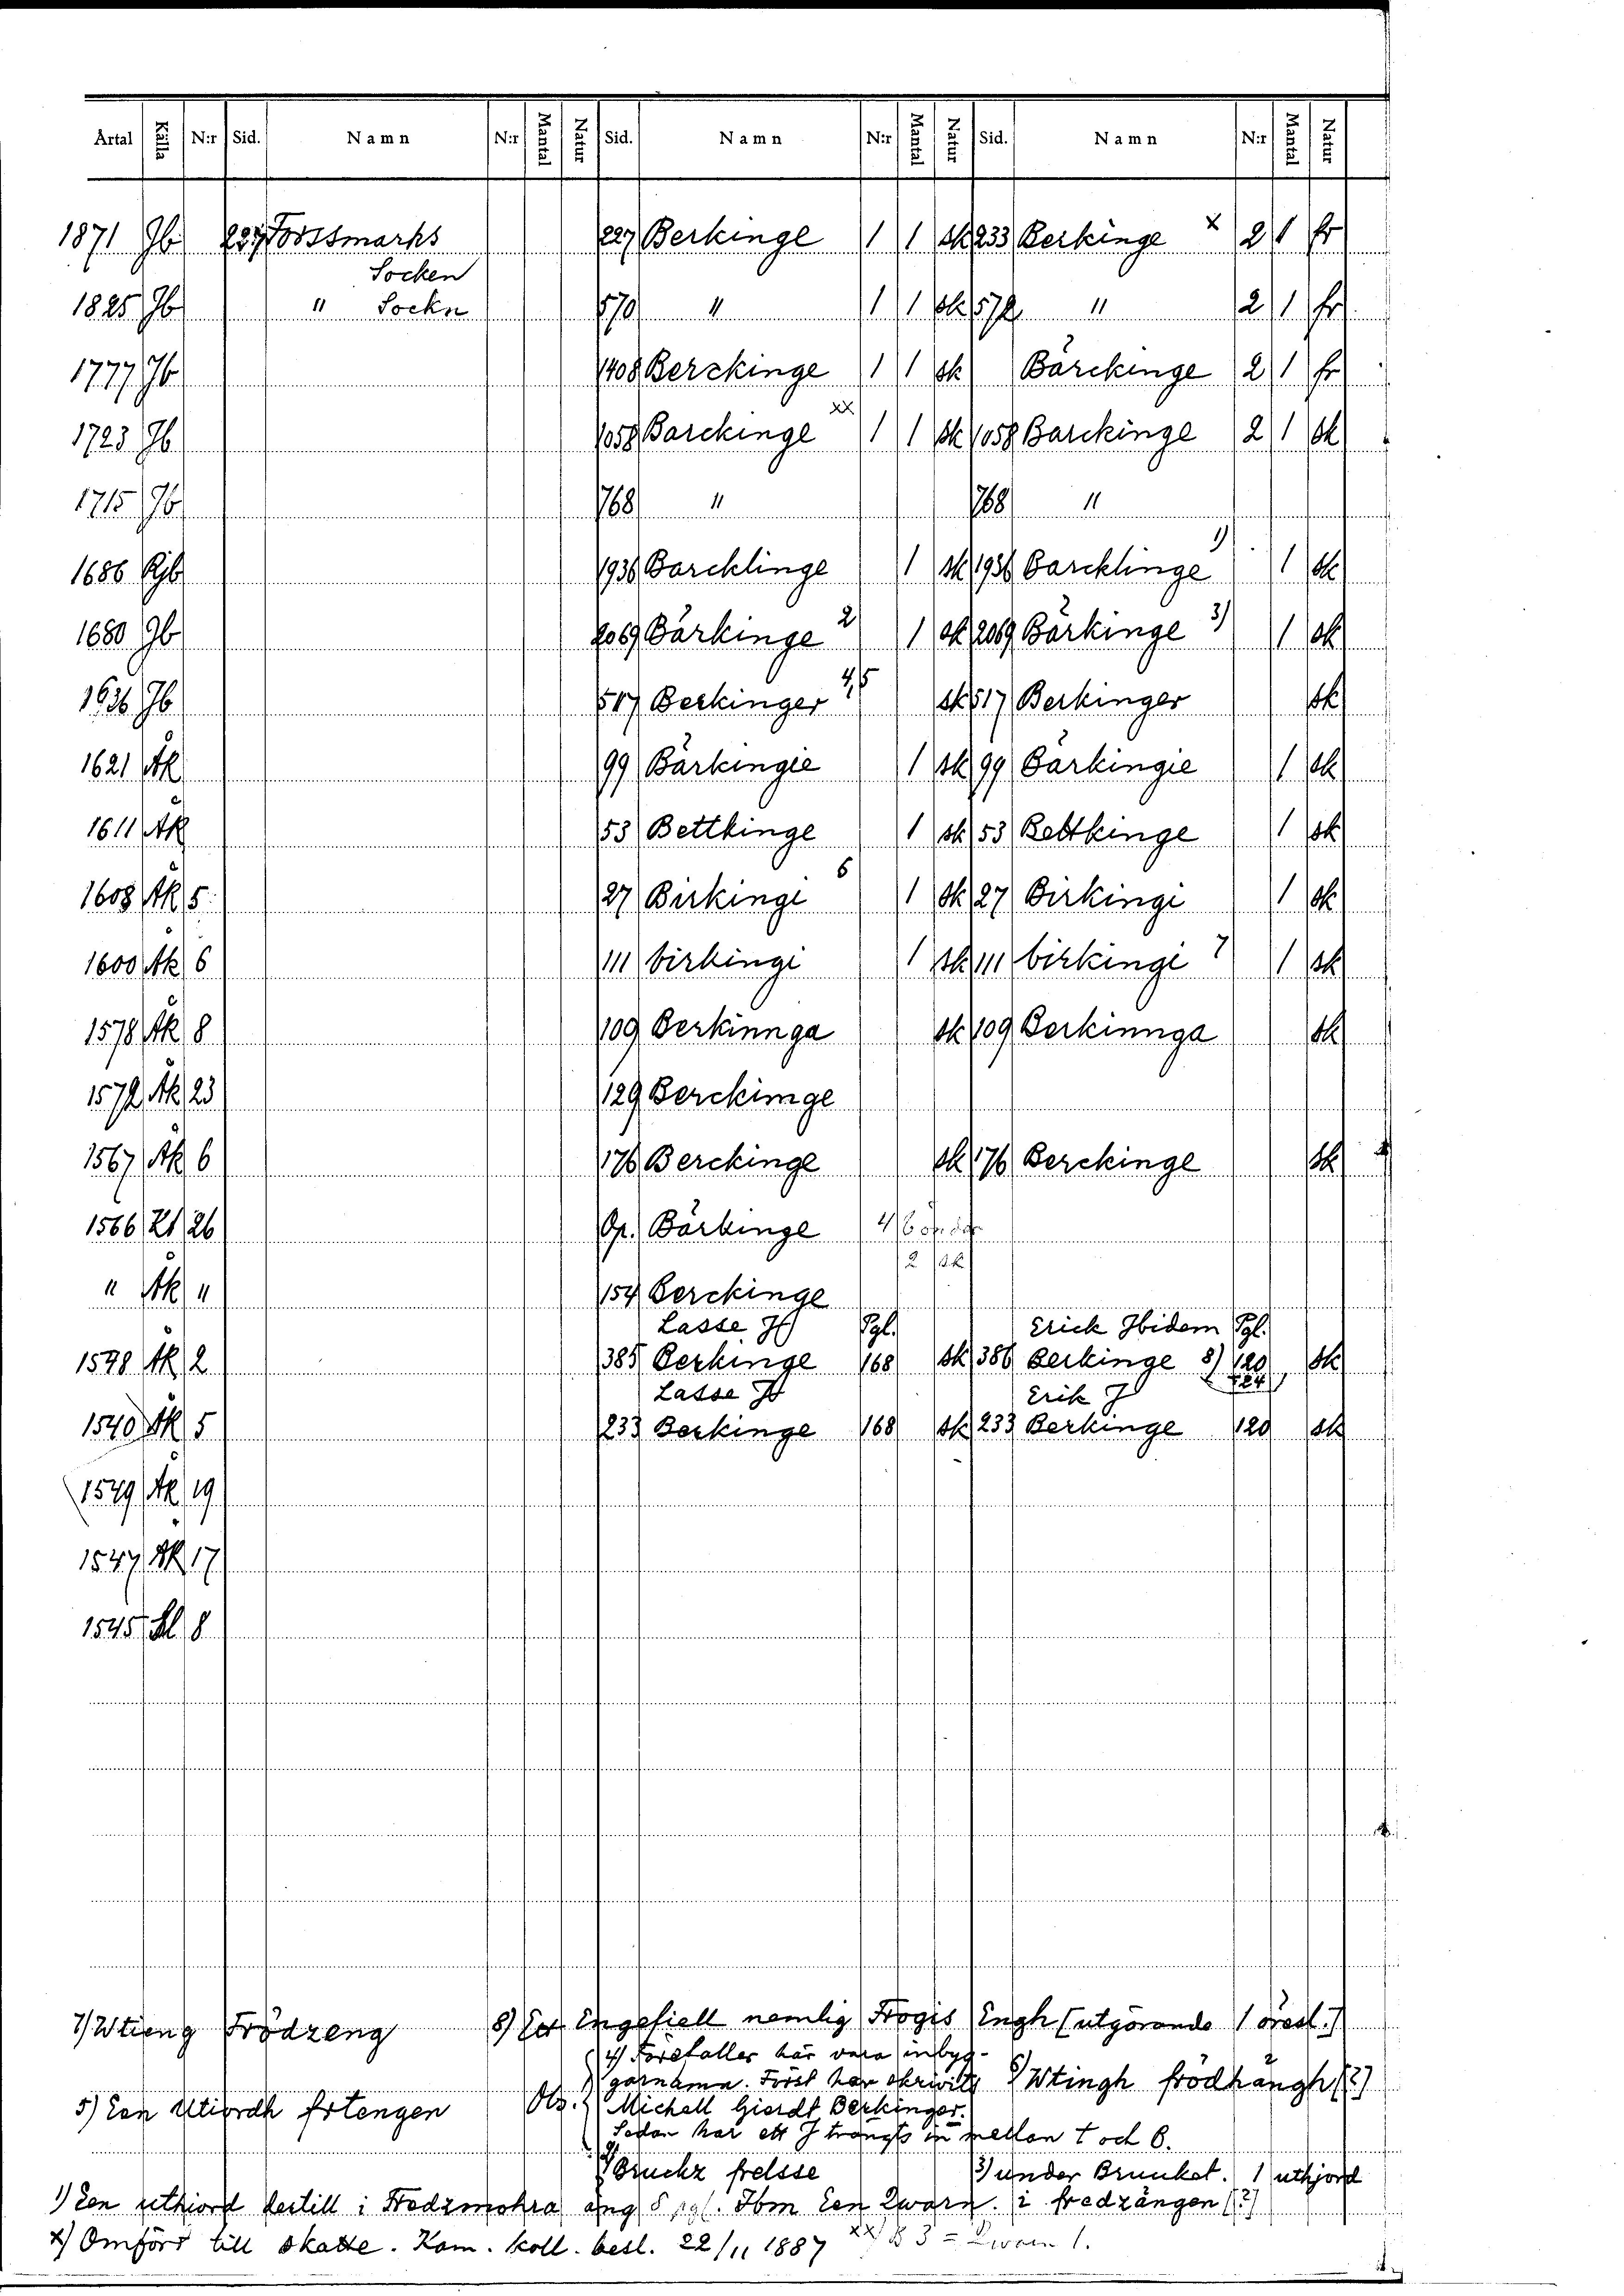 Årtal Källa N:r Sid. Namn N:r Mantal Natur Sid. Namn N:r Mantal Natur Sid. Namn N:r Mantal Natur
1871 Jb 227 Forssmarks 227 Berkinge 1 1 sk 233 Berkinge x 2 1 fr
Socken
1825 Jb " Sockn 570 " 1 1 sk 572 " 2 1 fr
1777 Jb 1408 Berckinge 1 1 sk Bärckinge 2 1 fr
1723 Jb 1058 Barckinge xx 1 1 sk 1058 Barckinge 2 1 sk
1715 Jb 768 " 768 "
1686 Rjb 1936 Barcklinge 1 sk 1936 Barcklinge 1) 1 sk
1680 Jb 2069 Bärkinge 2) 1 sk 2069 Bärkinge 3) 1 sk
1636 Jb 517 Berkinger 4,5 sk 517 Berkinger sk
1621 Åk 99 Bärkingie 1 sk 99 Bärkingie 1 sk
1611 Åk 53 Bettkinge 1 sk 53 Bettkinge 1 sk
1608 Åk 5 27 Birkinge 6 1 sk 27 Birkinge 1 sk
1600 Åk 6 111 birkinge 1 sk 111 birkinge 7 1 sk
1578 Åk 8 109 Berkinnga sk 109 Berkinnga sk
1572 Åk 23 129 Berckimge
1567 Åk 6 176 Berckinge sk 176 Berckinge sk
1566 26 Op. Bärkinge 4 bönder
2 sk
" Åk " 154 Berckinge
Lasse J Pgl. Erick Ibidem Pgl.
Åk 2 385 Berkinge 168 sk 386 Berkinge 8) 120 sk
Lasse J Erik J + 24
1540 Åk 5 233 Berkinge 168 sk 233 Berkinge 120 sk
1549 Åk 19
1547 Åk 17
1545 8
7) Wtieng Frödzeng 8) Ett Engefiell nemlig Frogis Engh [utgörande 1 öresl.]
4) Förefaller här vara inbyg-
garnamn. Först har skrivits 6) Wtingh frödhängh [?]
5) Een Utiordh frtengen Obs. Michell Gierdt Berkinger.
Sedan har ett J trängts in mellan t och B.
2) Bruckz frelsse 3) under Bruuket. 1 uthjord
1) Een uthiord dertill i Fredzmohra äng 5 pgl. Ibm Een Qwarn. i fredzängen [?]
x) Omförd till skatte. Kam. koll. besl. 22/11 1887 xx) B 3 = Qwarn 1.